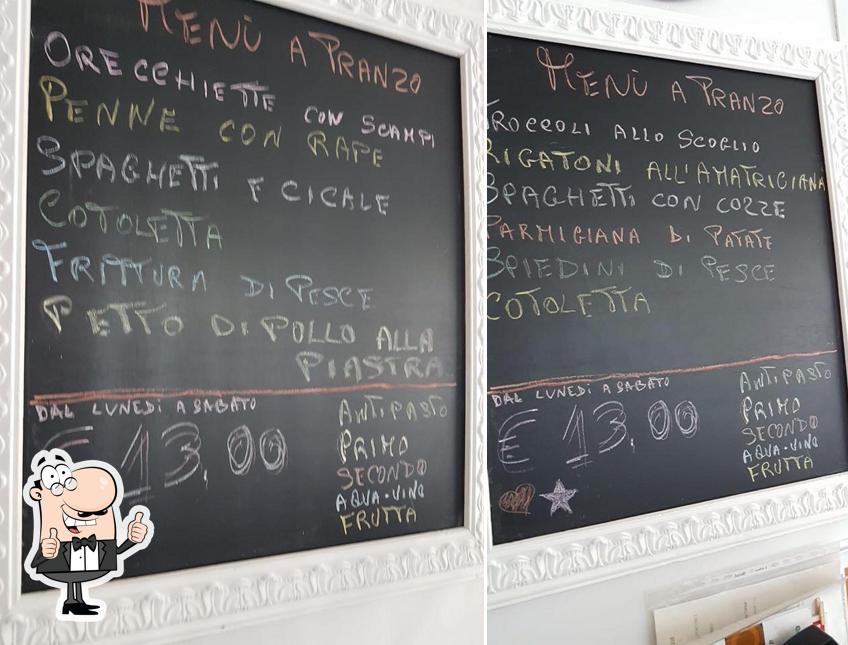 MENÙ A PRANZO
ORECCHIETTE CON SCAMPI
PENNE CON RAPE
SPAGHETTI E CICALE
COTOLETTA
FRITTURA DI PESCE
PETTO DI POLLO ALLA
PIASTRA
DAL LUNEDì A SABATO
€ 13,00
ANTIPASTO
PRIMO
SECONDO
AQUA-VINO
FRUTTA
MENÙ A PRANZO
TROCCOLI ALLO SCOGLIO
RIGATONI ALL'AMATRIGIANA
SPAGHETTI CON COZZE
PARMIGIANA DI PATATE
SPIEDINI DI PESCE
COTOLETTA
DAL LUNEDì A SABATO
€ 13,00
ANTIPASTO
PRIMO
SECONDO
AQUA-VINO
FRUTTA